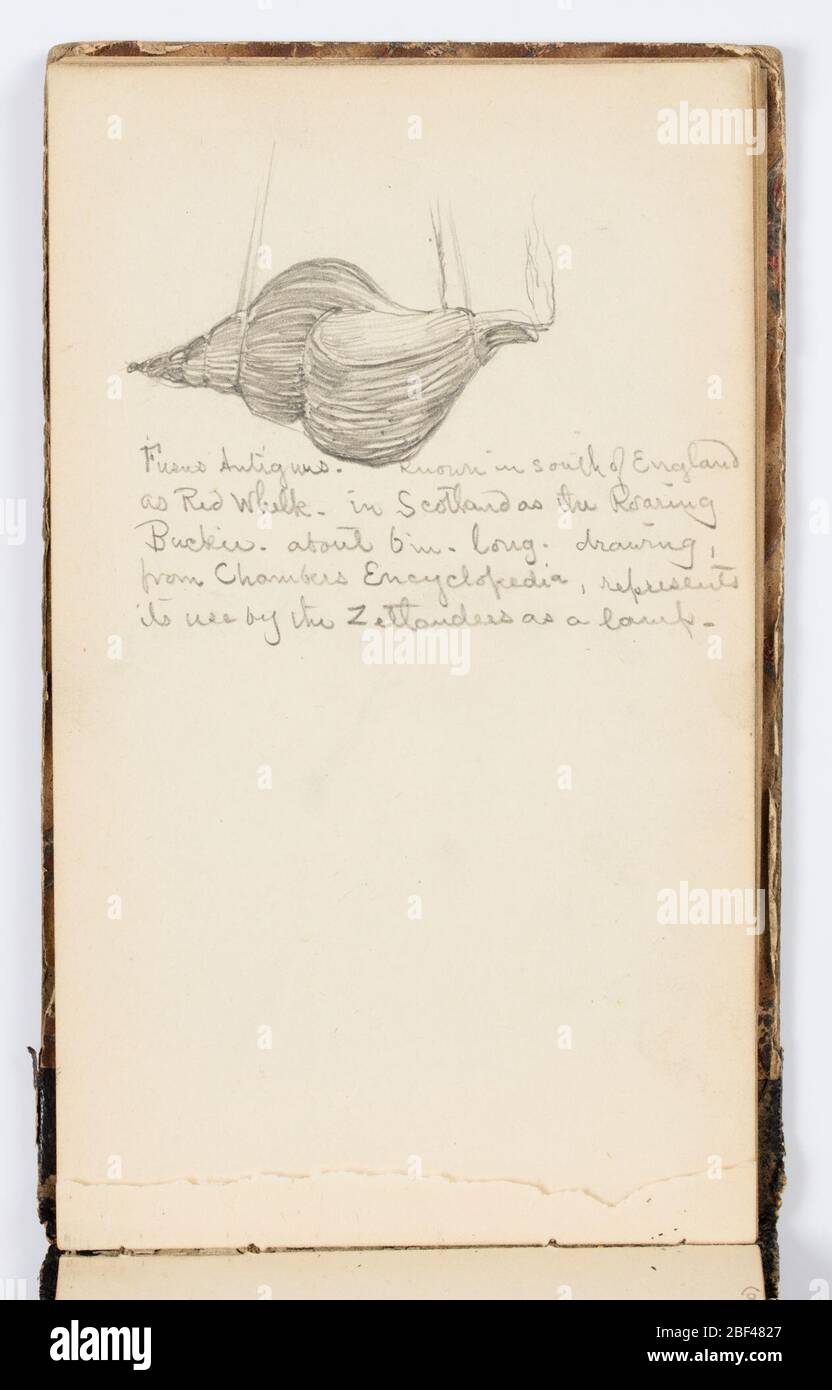 Fusus Antiquus. Known in south of England
as Red Whelk. in Scotland as the Roaring
Buckie. about 6 in. long. drawing,
from Chambers Encyclopedia, represents
its use by the Zetlanders as a lamp.
alamy
alamy
a
a
a
a
a
a
a
a
a
a
alamy
Image ID: 2BF4827
www.alamy.com